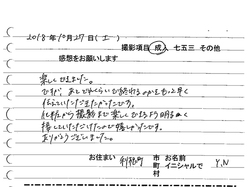 2018年10月27日(土)
撮影項目 成人 七五三 その他
感想をお願いします
楽しかったです。
ですが、あとどれくらいで終わるのかをもう少し早く
伝えていただきたかったです。
お化粧から撮影まで楽しめるよう明るく
接していただけたので嬉しかったです。
ありがとうございました。
お住まい 利府町 市町村 お名前 イニシャルで Y.N